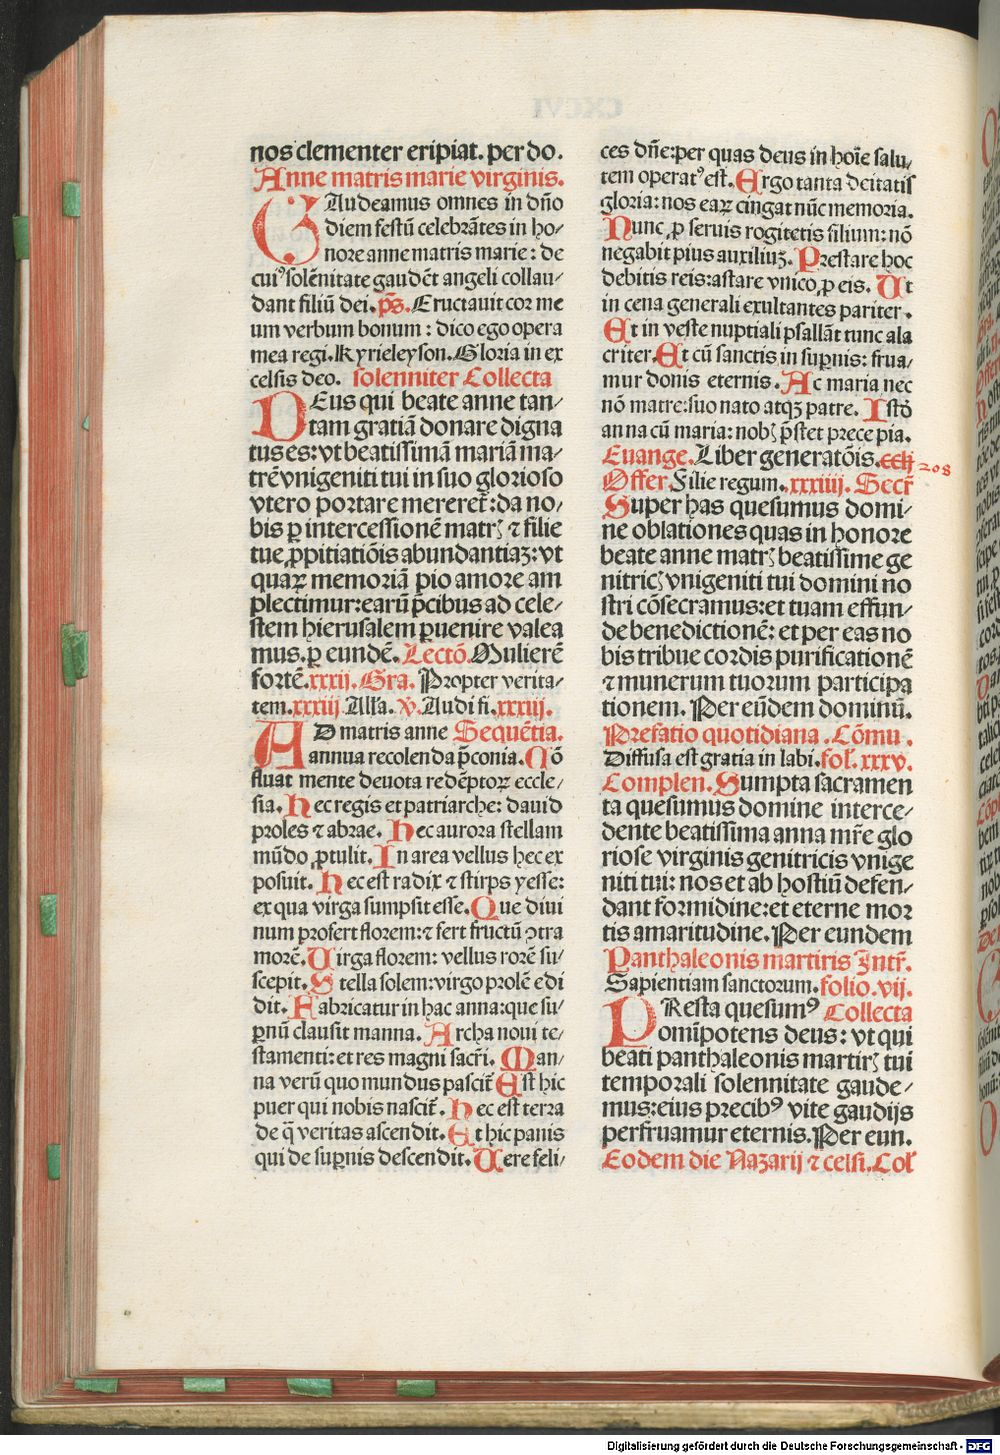 nos clementer eripiat. per do.
Anne matris marie virginis.
GAudeamus omnes in dño
diem festũ celebrãtes in ho-
nore anne matris marie: de
cuiꝰ solẽnitate gaudẽt angeli collau-
dant filiũ dei. p̃s. Eructauit cor me
um verbum bonum: dico ego opera
mea regi. Kyrieleyson. Gloria in ex
celsis deo. solenniter Collecta
DEus qui beate anne tan-
tam gratiã donare digna
tus es: vt beatissimã mariã ma-
trẽ vnigeniti tui in suo glorioso
vtero portare mereret̃: da no-
bis ꝑ intercessionẽ matrꝫ ⁊ filie
tue ꝓpitiatiõis abundantiaꝫ: vt
quaꝝ memoriã pio amore am
plectimur: earũ p̃cibus ad cele-
stem hierusalem ꝑuenire valea
mus. ꝑ eundẽ. Lectõ. Mulierẽ
fortẽ. xxxij. Gra. Propter verita-
tem. xxxiij Alla. v̾. Audi fi. xxxiij.
AD matris anne Sequẽtia.
annua recolenda p̃conia. Cõ
fluat mente deuota redẽptoꝝ eccle-
sia. Hec regis et patriarche: dauid
proles ⁊ abrae. Hec aurora stellam
mũdo ꝓtulit. In area vellus hec ex
posuit. Hec est radix ⁊ stirps yesse:
ex qua virga sumpsit esse. Que diui
num ꝓfert florem: ⁊ fert fructũ ꝯtra
morẽ. Uirga florem: vellus rorẽ su-
scepit. Stella solem: virgo prolẽ edi
dit. Fabricatur in hac anna: que su-
ꝑnũ clausit manna. Archa noui te-
stamenti: et res magni sacr̃i. Man-
na verũ quo mundus pascit̃ Est hic
puer qui nobis nascit̃. Hec est terra
de q̃ veritas ascendit. Et hic panis
qui de suꝑnis descendit. Uere feli-
ces dñe: per quas deus in hoĩe salu-
tem operatꝰ est. Ergo tanta deitatis
gloria: nos eaꝝ cingat nũc memoria.
Nunc ꝓ seruis rogitetis filium: nõ
negabit pius auxiliuꝫ. Prestare hoc
debitis reis: astare vnico ꝓ eis. Ut
in cena generali exultantes pariter.
Et in veste nuptiali psallãt tunc ala
criter. Et cũ sanctis in suꝑnis: frua-
mur donis eternis. Ac maria nec
nõ matre: suo nato atqꝫ patre. Istō
anna cũ maria: nobꝫ p̃stet prece pia.
Euange. Liber generatõis. cclj 208
Offer. Filie regum. xxxiiij. Secr̃
Super has quesumus domi-
ne oblationes quas in honore
beate anne matrꝫ beatissime ge
nitricꝫ vnigeniti tui domini no
stri cõsecramus: et tuam effun-
de benedictionẽ: et per eas no
bis tribue cordis purificationẽ
⁊ munerum tuorum participa
tionem. Per eũdem dominũ.
Prefatio quotidiana. Cõmu.
Diffusa est gratia in labi. fol. xxxv.
Complen. Sumpta sacramen
ta quesumus domine interce-
dente beatissima anna mr̃e glo
riose virginis genitricis vnige
niti tui: nos et ab hostiũ defen-
dant formidine: et eterne mor
tis amaritudine. Per eundem
Panthaleonis martiris Intr̃.
Sapientiam sanctorum. folio. vij.
PResta quesumꝰ Collecta
omĩpotens deus: vt qui
beati panthaleonis martirꝫ tui
temporali solennitate gaude-
mus: eius precibꝰ vite gaudijs
perfruamur eternis. Per eun.
Eodem die Nazarij ⁊ celsi. Col̃
Digitalisierung gefördert durch die Deutsche Forschungsgemeinschaft - DFG